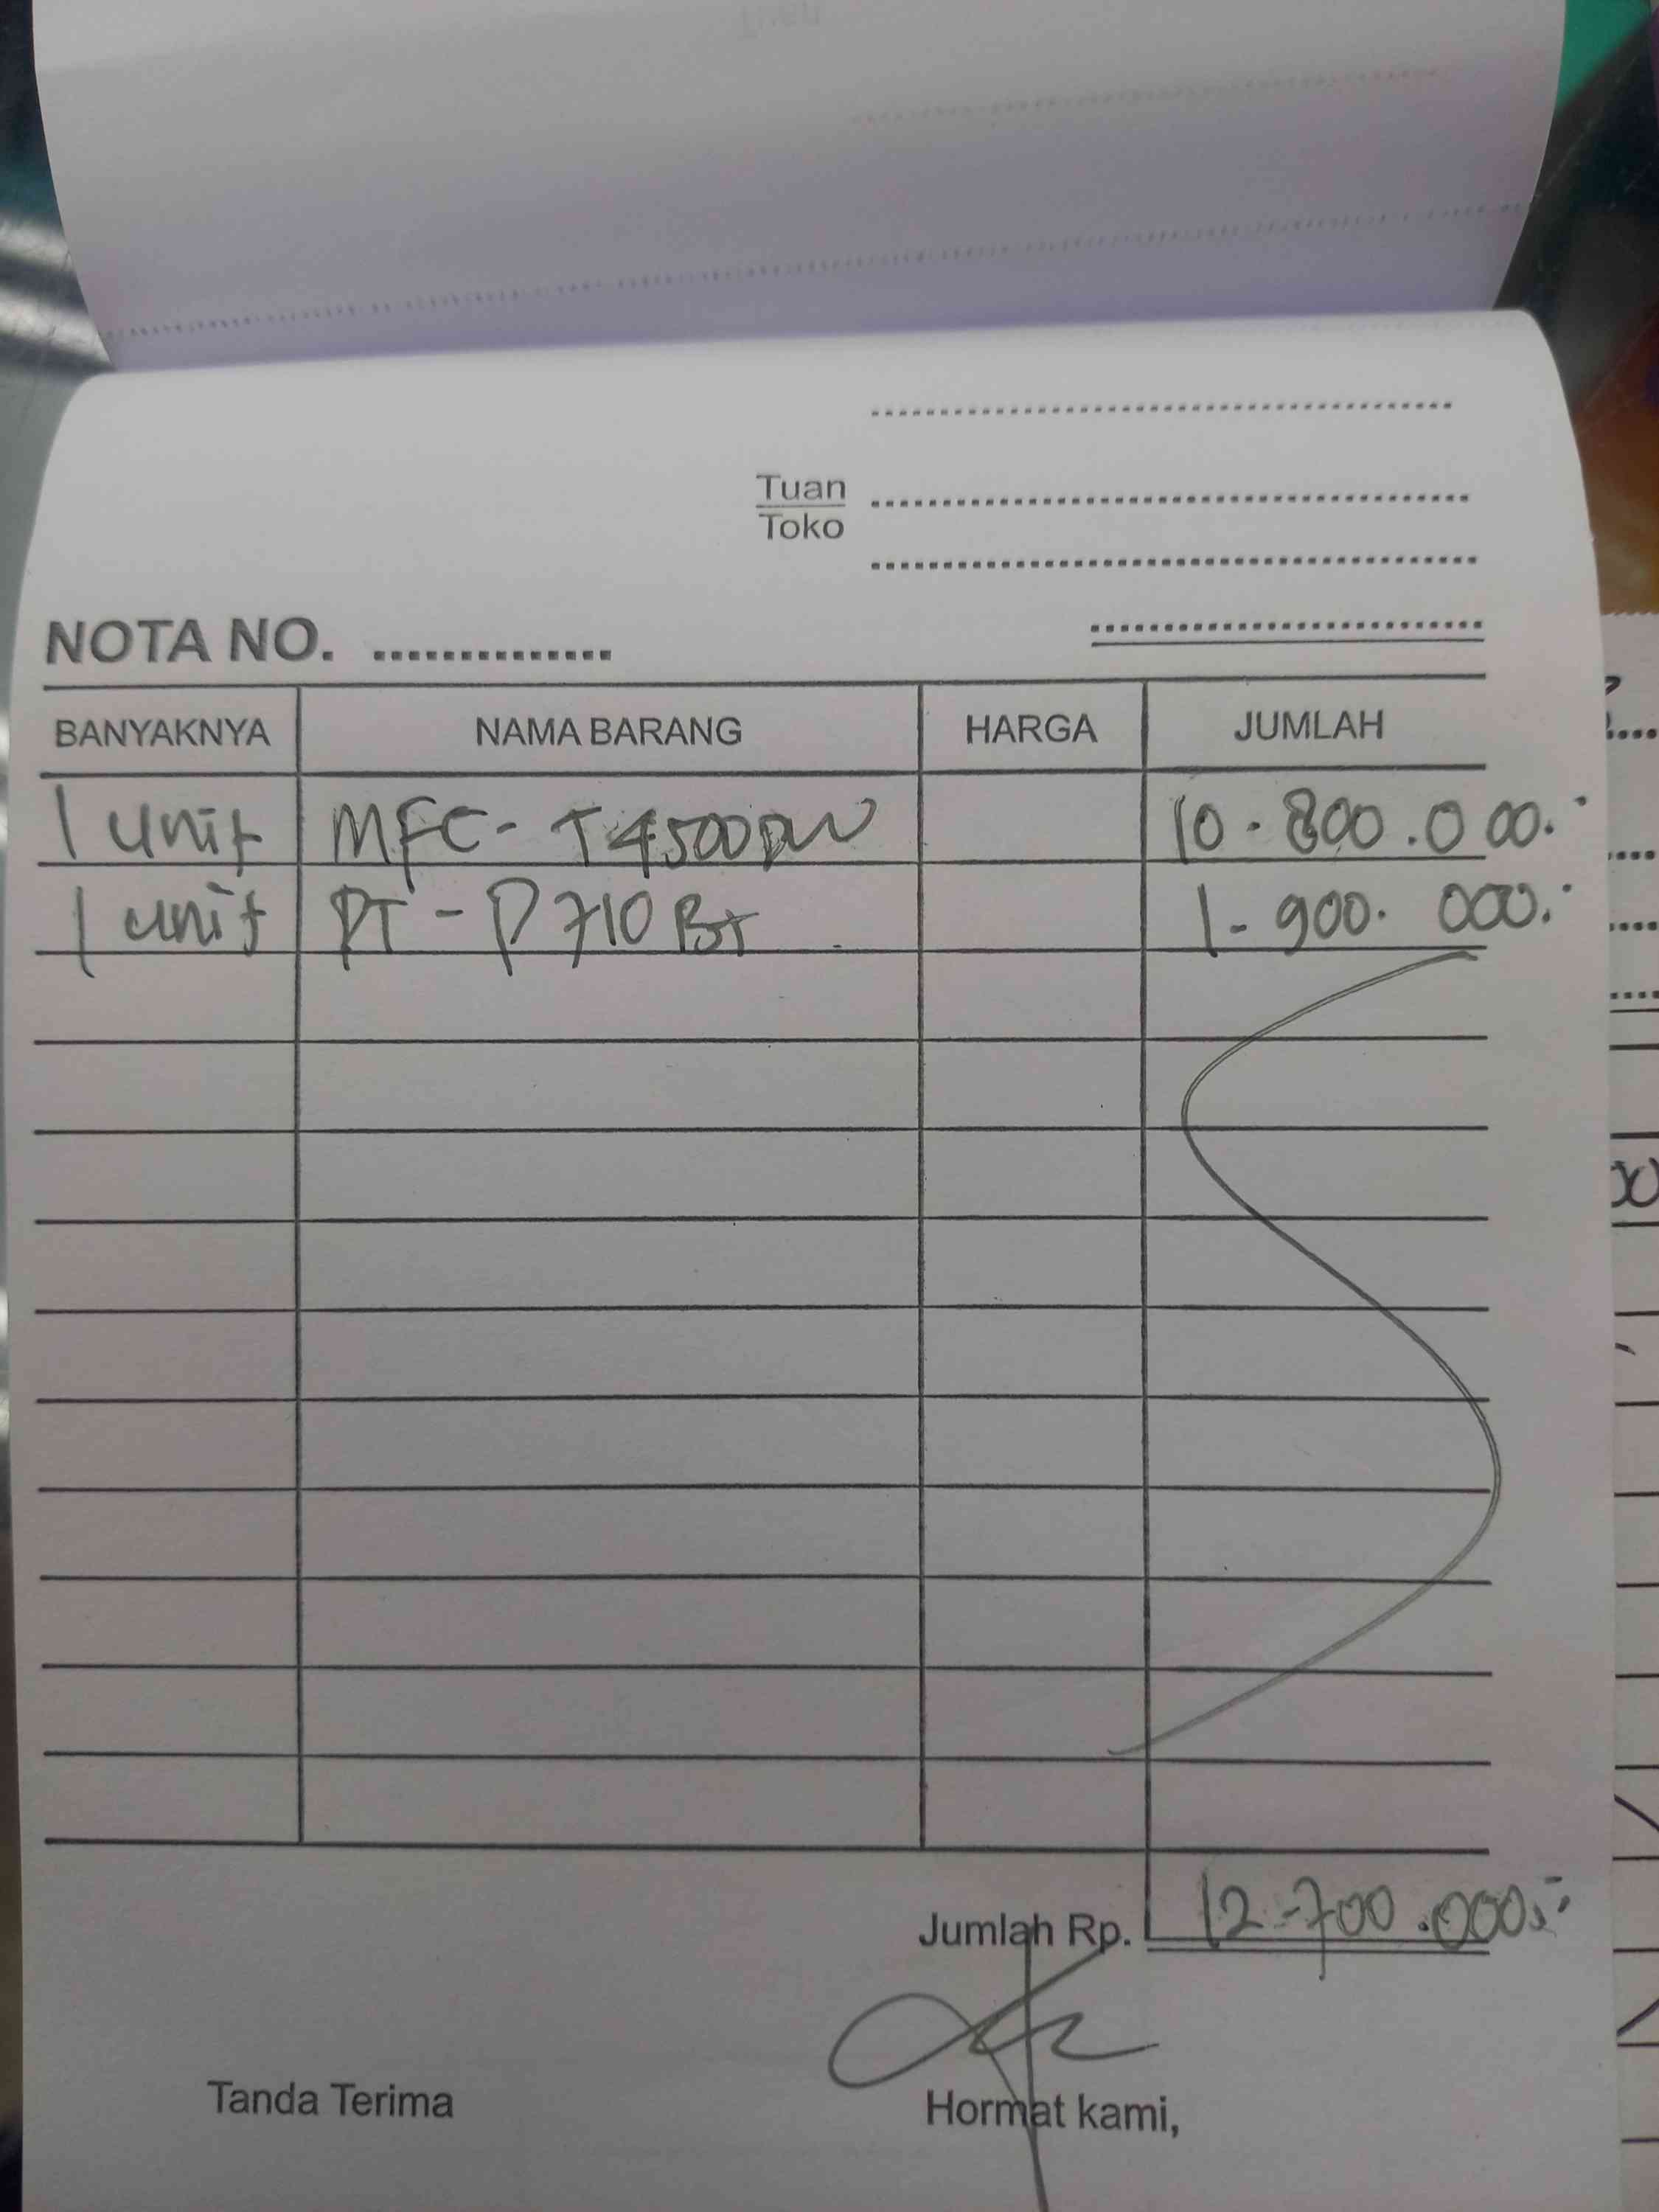 Tuan
Toko
NOTA NO. ..............
BANYAKNYA NAMA BARANG HARGA JUMLAH
1 unit MFC - T4500DW 10.800.000.-
1 unit PT - P710BT 1.900.000.-
Jumlah Rp. 12.700.000.-
Tanda Terima Hormat kami,